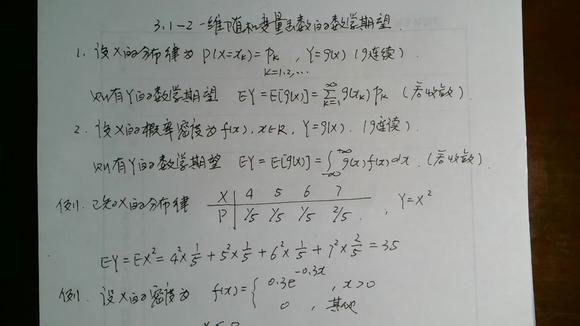 3.1-2 一维随机变量函数的数学期望
1. 设X的分布律为 P(X=xk)=Pk , Y=g(x) (g连续)
k=1,2,...
则有Y的数学期望 EY=E[g(x)]=∑_{k=1}^{∞} g(xk) Pk (若收敛)
2. 设X的概率密度为f(x), x∈R, Y=g(x). (g连续)
则有Y的数学期望 EY=E[g(x)]=∫_{-∞}^{+∞} g(x) f(x) dx . (若收敛)
例1. 已知X的分布律 X 4 5 6 7 , Y=X²
P 1/5 1/5 1/5 2/5
EY=EX²=4²×1/5+5²×1/5+6²×1/5+7²×2/5=35
例1. 设X的密度为 f(x)={ 0.3e^{-0.3x} , x>0
0 , 其他